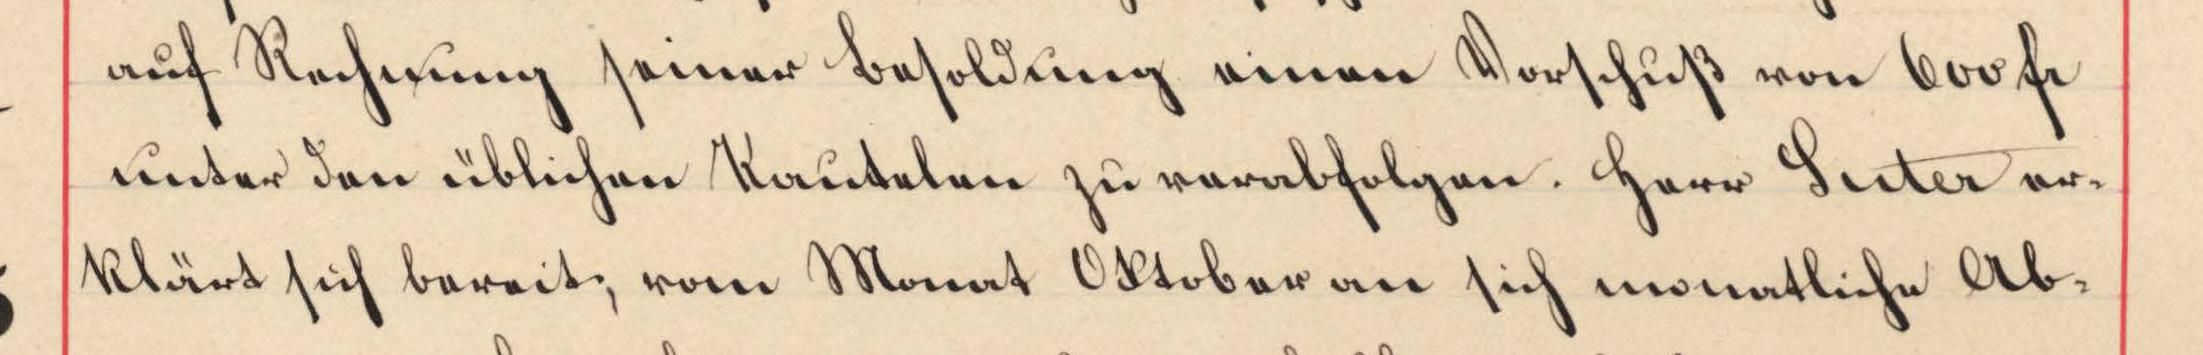 auf Rechnung seiner Besoldung einen Vorschuß von 600 fr
unter den üblichen Kautelen zu verabfolgen. Herr Suter er-
klärt sich bereit, vom Monat Oktober an sich monatliche Ab-